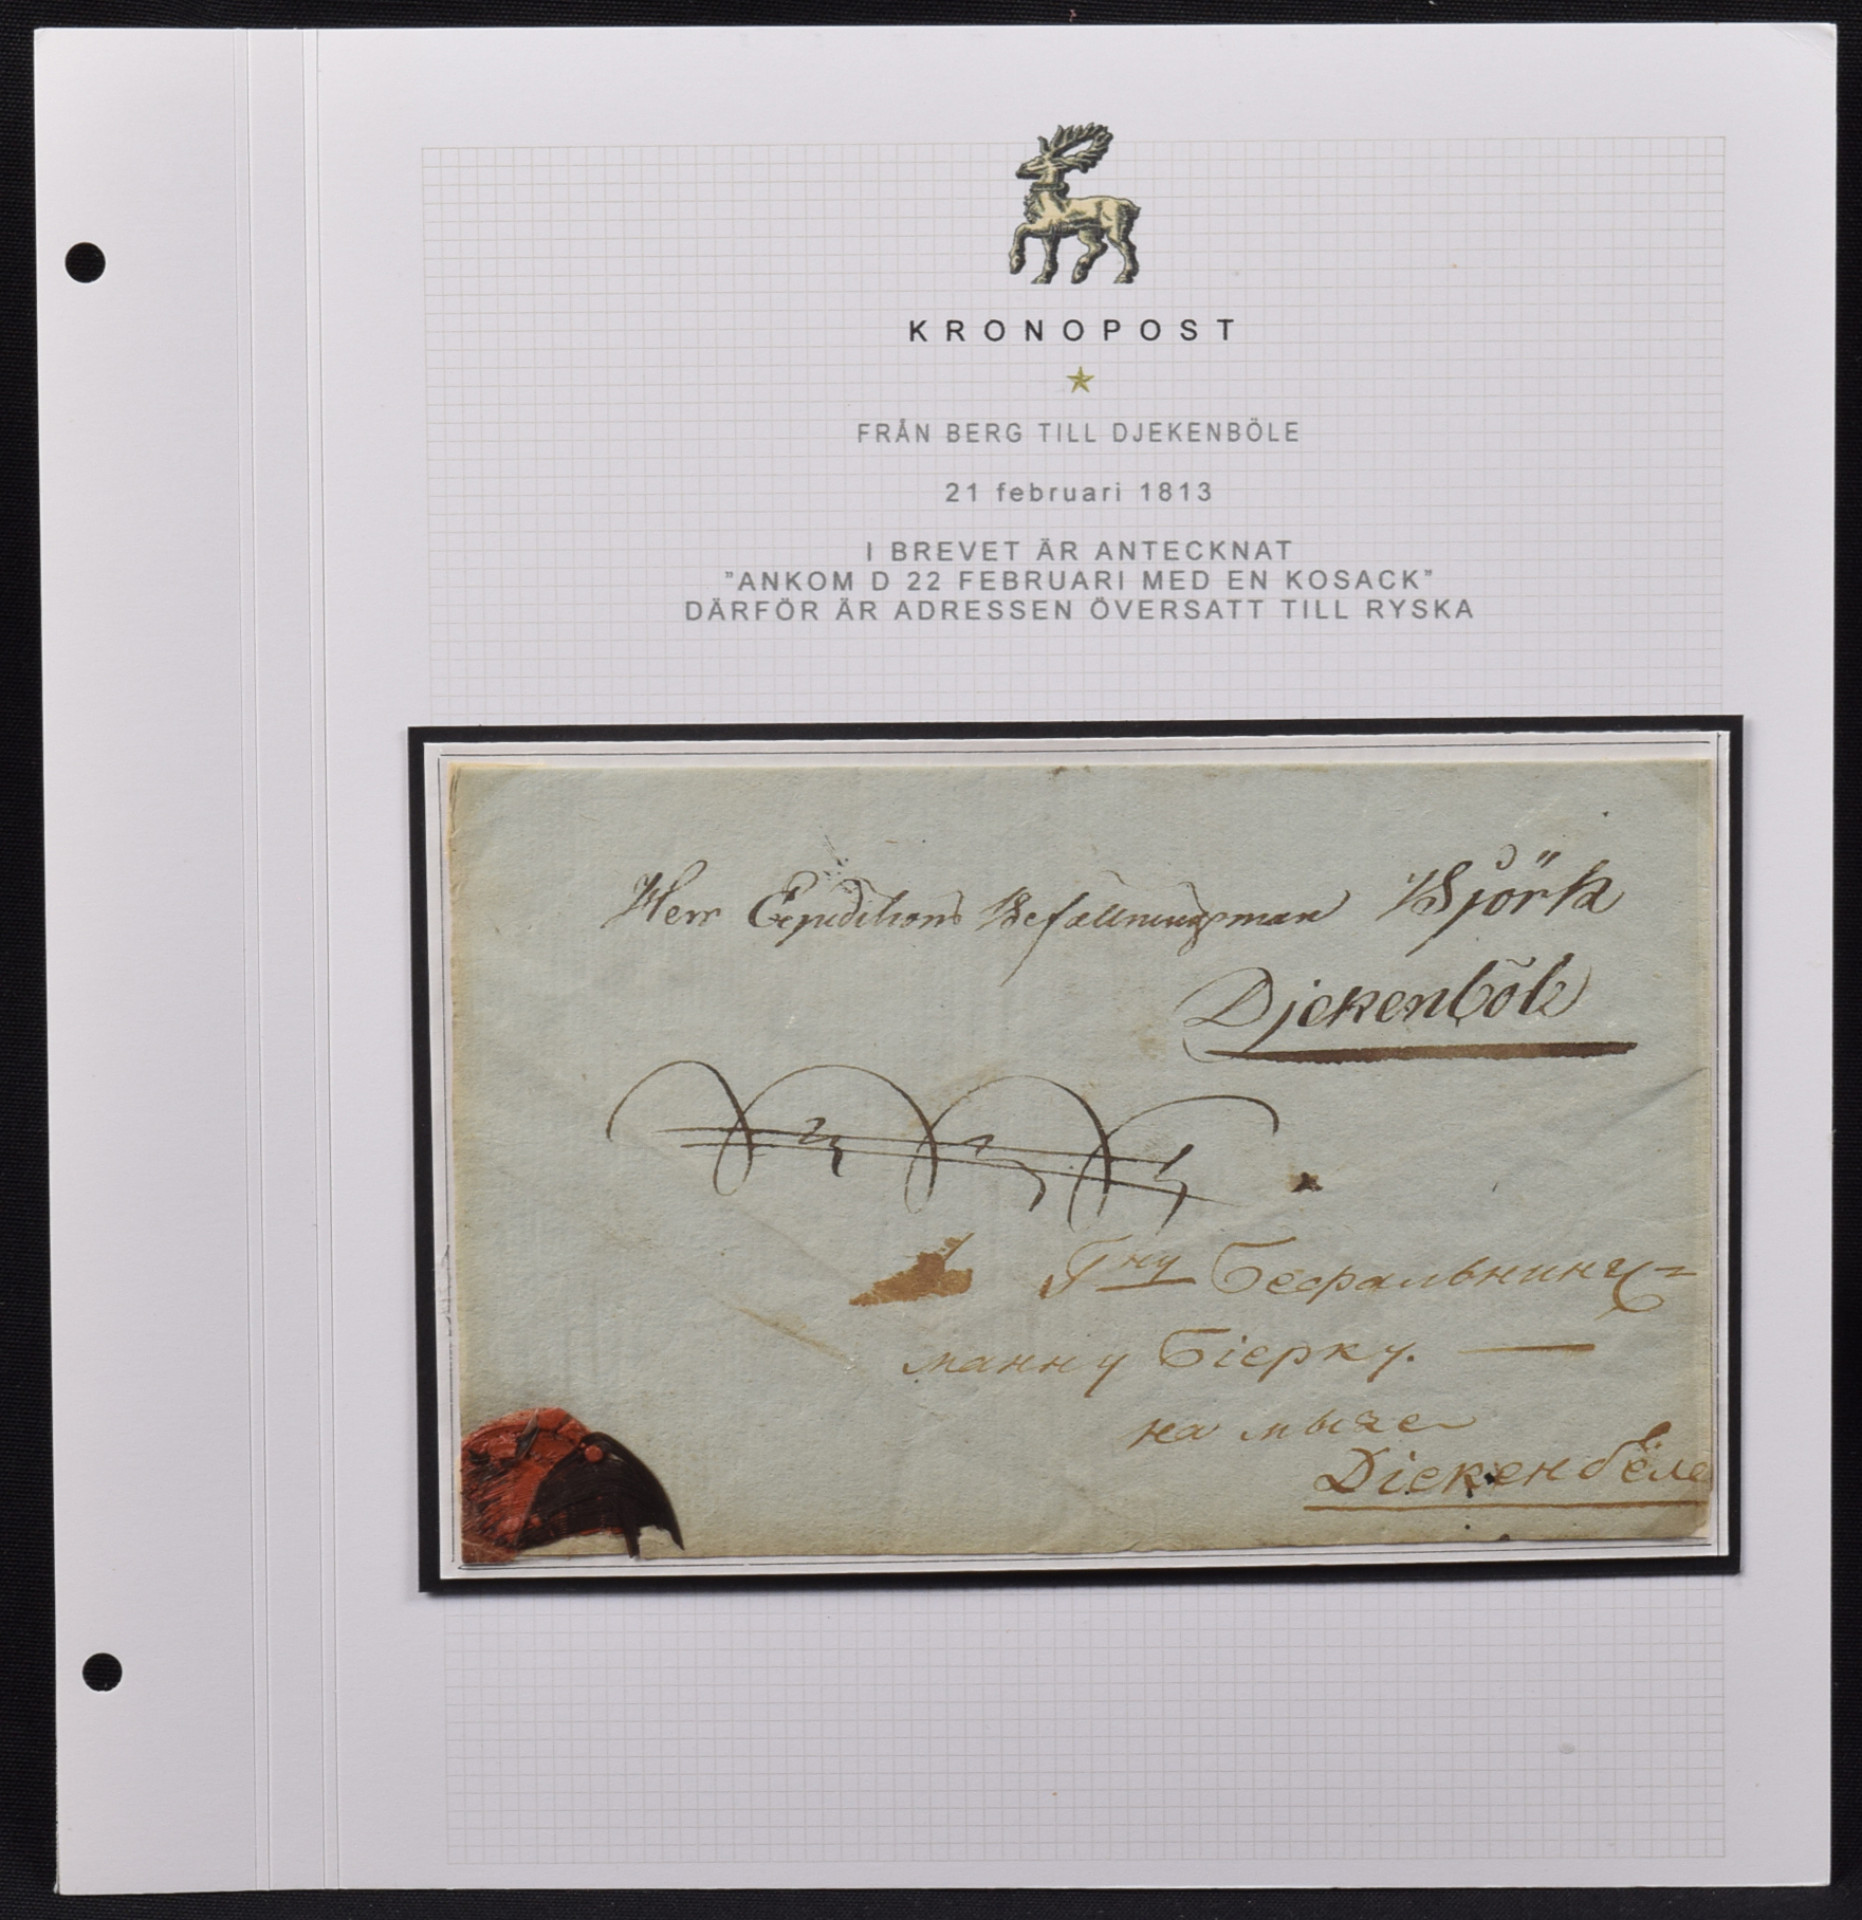 KRONOPOST
FRÅN BERG TILL DJEKENBÖLE
21 februari 1813
I BREVET ÄR ANTECKNAT
”ANKOM D 22 FEBRUARI MED EN KOSACK”
DÄRFÖR ÄR ADRESSEN ÖVERSATT TILL RYSKA
Herr Expeditions Befallningsman Björk
Djekenböle
Гну Бефальнингс=
манну Біерку. —
на мызе
Діекенбёле